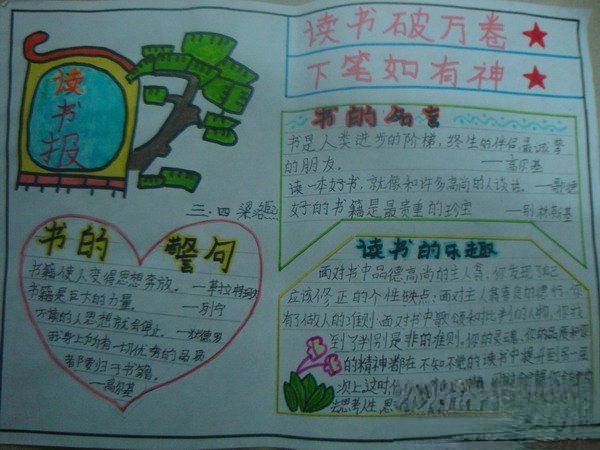 读书报
三.四 梁
读书破万卷
下笔如有神
书的名言
书是人类进步的阶梯,终生的伴侣最诚挚
的朋友。 ——高尔基
读一本好书,就像和许多高尚的人谈话。——歌德
好的书籍是最贵重的珍宝 ——别林斯基
书的警句
书籍使人变得思想奔放。
书籍是巨大的力量。——列宁
的人思想就会停止。——狄德罗
我身上的一切优秀的品质
都要归于书籍。
——高尔基
读书的乐趣
面对书中品德高尚的主人翁,你发现了自己
应该修正的个性缺点;面对主人翁善良的德行,你
有了做人的准则;面对书中歌颂和批判的人物,你找
到了判别是非的准则。你的灵魂、你的品质和你
的精神都在不知不觉的读书中提升到另一层
次上这时,
去思考人生,思